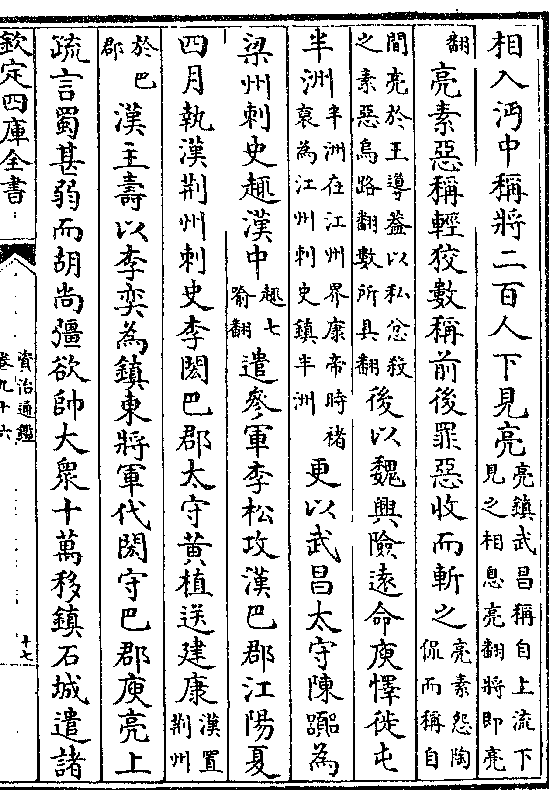 相入沔中稱將二百人下見亮亮鎮武昌稱自上流下見之相息亮翻將即亮
翻亮素惡稱輕狡數稱前後罪惡收而斬之亮素怨陶侃而稱自
間亮於王導益以私忿殺之素惡烏路翻數所具翻後以魏興險遠命庾懌徙屯
半洲半洲在江州界康帝時褚裒為江州刺史鎮半洲更以武昌太守陳囂為
梁州刺史趣漢中趣七喻翻遣參軍李松攻漢巴郡江陽夏
四月執漢荆州刺史李閎巴郡太守黄植送建康漢置荆州
於巴郡漢主壽以李奕為鎮東將軍代閎守巴郡庾亮上
疏言蜀甚弱而胡尚彊欲帥大衆十萬移鎮石城遣諸
欽定四庫全書
資治通鑑
卷九十六
十七